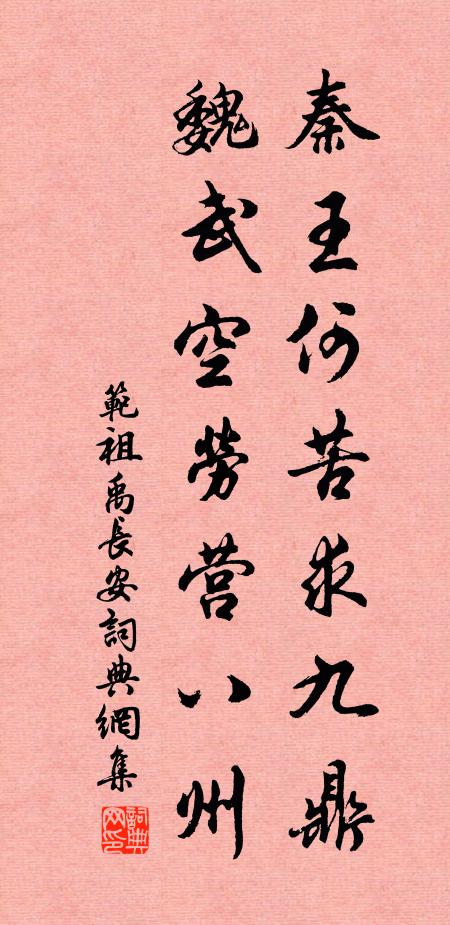 秦王何苦求九鼎
魏武空劳营八州
範祖禹長安詞典網集
詞典网印